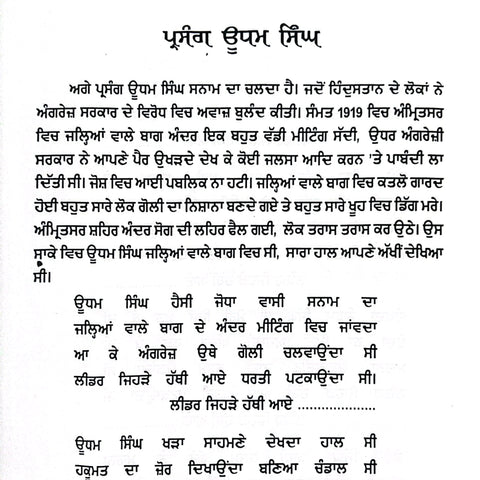 ਪ੍ਰਸੰਗ ਊਧਮ ਸਿੰਘ
ਅਗੇ ਪ੍ਰਸੰਗ ਊਧਮ ਸਿੰਘ ਸਨਾਮ ਦਾ ਚਲਦਾ ਹੈ। ਜਦੋਂ ਹਿੰਦੁਸਤਾਨ ਦੇ ਲੋਕਾਂ ਨੇ
ਅੰਗਰੇਜ਼ ਸਰਕਾਰ ਦੇ ਵਿਰੋਧ ਵਿਚ ਅਵਾਜ਼ ਬੁਲੰਦ ਕੀਤੀ। ਸੰਮਤ 1919 ਵਿਚ ਅੰਮ੍ਰਿਤਸਰ
ਵਿਚ ਜਲ੍ਹਿਆਂ ਵਾਲੇ ਬਾਗ ਅੰਦਰ ਇਕ ਬਹੁਤ ਵੱਡੀ ਮੀਟਿੰਗ ਸੱਦੀ, ਉਧਰ ਅੰਗਰੇਜ਼ੀ
ਸਰਕਾਰ ਨੇ ਆਪਣੇ ਪੈਰ ਉਖੜਦੇ ਦੇਖ ਕੇ ਕੋਈ ਜਲਸਾ ਆਦਿ ਕਰਨ 'ਤੇ ਪਾਬੰਦੀ ਲਾ
ਦਿੱਤੀ ਸੀ। ਜੋਸ਼ ਵਿਚ ਆਈ ਪਬਲਿਕ ਨਾ ਹਟੀ। ਜਲ੍ਹਿਆਂ ਵਾਲੇ ਬਾਗ ਵਿਚ ਕਤਲੋ ਗਾਰਦ
ਹੋਈ ਬਹੁਤ ਸਾਰੇ ਲੋਕ ਗੋਲੀ ਦਾ ਨਿਸ਼ਾਨਾ ਬਣਦੇ ਗਏ ਤੇ ਬਹੁਤ ਸਾਰੇ ਖੂਹ ਵਿਚ ਡਿੱਗ ਮਰੇ।
ਅੰਮ੍ਰਿਤਸਰ ਸ਼ਹਿਰ ਅੰਦਰ ਸੋਗ ਦੀ ਲਹਿਰ ਫੈਲ ਗਈ, ਲੋਕ ਤਰਾਸ ਤਰਾਸ ਕਰ ਉਠੇ। ਉਸ
ਸਾਕੇ ਵਿਚ ਊਧਮ ਸਿੰਘ ਜਲ੍ਹਿਆਂ ਵਾਲੇ ਬਾਗ ਵਿਚ ਸੀ, ਸਾਰਾ ਹਾਲ ਆਪਣੇ ਅੱਖੀਂ ਦੇਖਿਆ
ਸੀ।
ਊਧਮ ਸਿੰਘ ਹੈਸੀ ਜੋਧਾ ਵਾਸੀ ਸਨਾਮ ਦਾ
ਜਲ੍ਹਿਆਂ ਵਾਲੇ ਬਾਗ ਦੇ ਅੰਦਰ ਮੀਟਿੰਗ ਵਿਚ ਜਾਂਵਦਾ
ਆ ਕੇ ਅੰਗਰੇਜ਼ ਉਥੇ ਗੋਲੀ ਚਲਵਾਉਂਦਾ ਸੀ
ਲੀਡਰ ਜਿਹੜੇ ਹੱਥੀ ਆਏ ਧਰਤੀ ਪਟਕਾਉਂਦਾ ਸੀ।
ਲੀਡਰ ਜਿਹੜੇ ਹੱਥੀ ਆਏ ....................
ਊਧਮ ਸਿੰਘ ਖੜਾ ਸਾਹਮਣੇ ਦੇਖਦਾ ਹਾਲ ਸੀ
ਹਕੂਮਤ ਦਾ ਜ਼ੋਰ ਦਿਖਾਉਂਦਾ ਬਣਿਆ ਚੰਡਾਲ ਸੀ